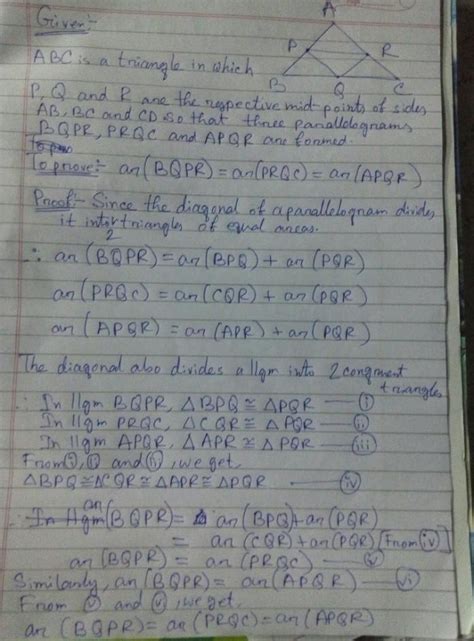 Given:-
A
P
R
B
Q
C
ABC is a triangle in which
P, Q and R are the respective mid-points of sides
AB, BC and CD so that three parallelograms
BQPR, PRQC and APQR are formed.
To prove:- ar(BQPR) = ar(PRQC) = ar(APQR)
Proof:- Since the diagonal of a parallelogram divides
it into 2 triangles of equal areas.
∴ ar(BQPR) = ar(BPQ) + ar(PQR)
ar(PRQC) = ar(CQR) + ar(PQR)
ar(APQR) = ar(APR) + ar(PQR)
The diagonal also divides a llgm into 2 congruent
triangles
∴ In llgm BQPR, △BPQ ≅ △PQR — (i)
In llgm PRQC, △CQR ≅ △PQR — (ii)
In llgm APQR, △APR ≅ △PQR — (iii)
From (i), (ii) and (iii), we get,
△BPQ ≅ △CQR ≅ △APR ≅ △PQR — (iv)
ar(BQPR) = ar(BPQ) + ar(PQR)
= ar(CQR) + ar(PQR) [From (iv)]
ar(BQPR) = ar(PRQC) — (v)
Similarly, ar(BQPR) = ar(APQR) — (vi)
From (v) and (vi), we get,
ar(BQPR) = ar(PRQC) = ar(APQR)